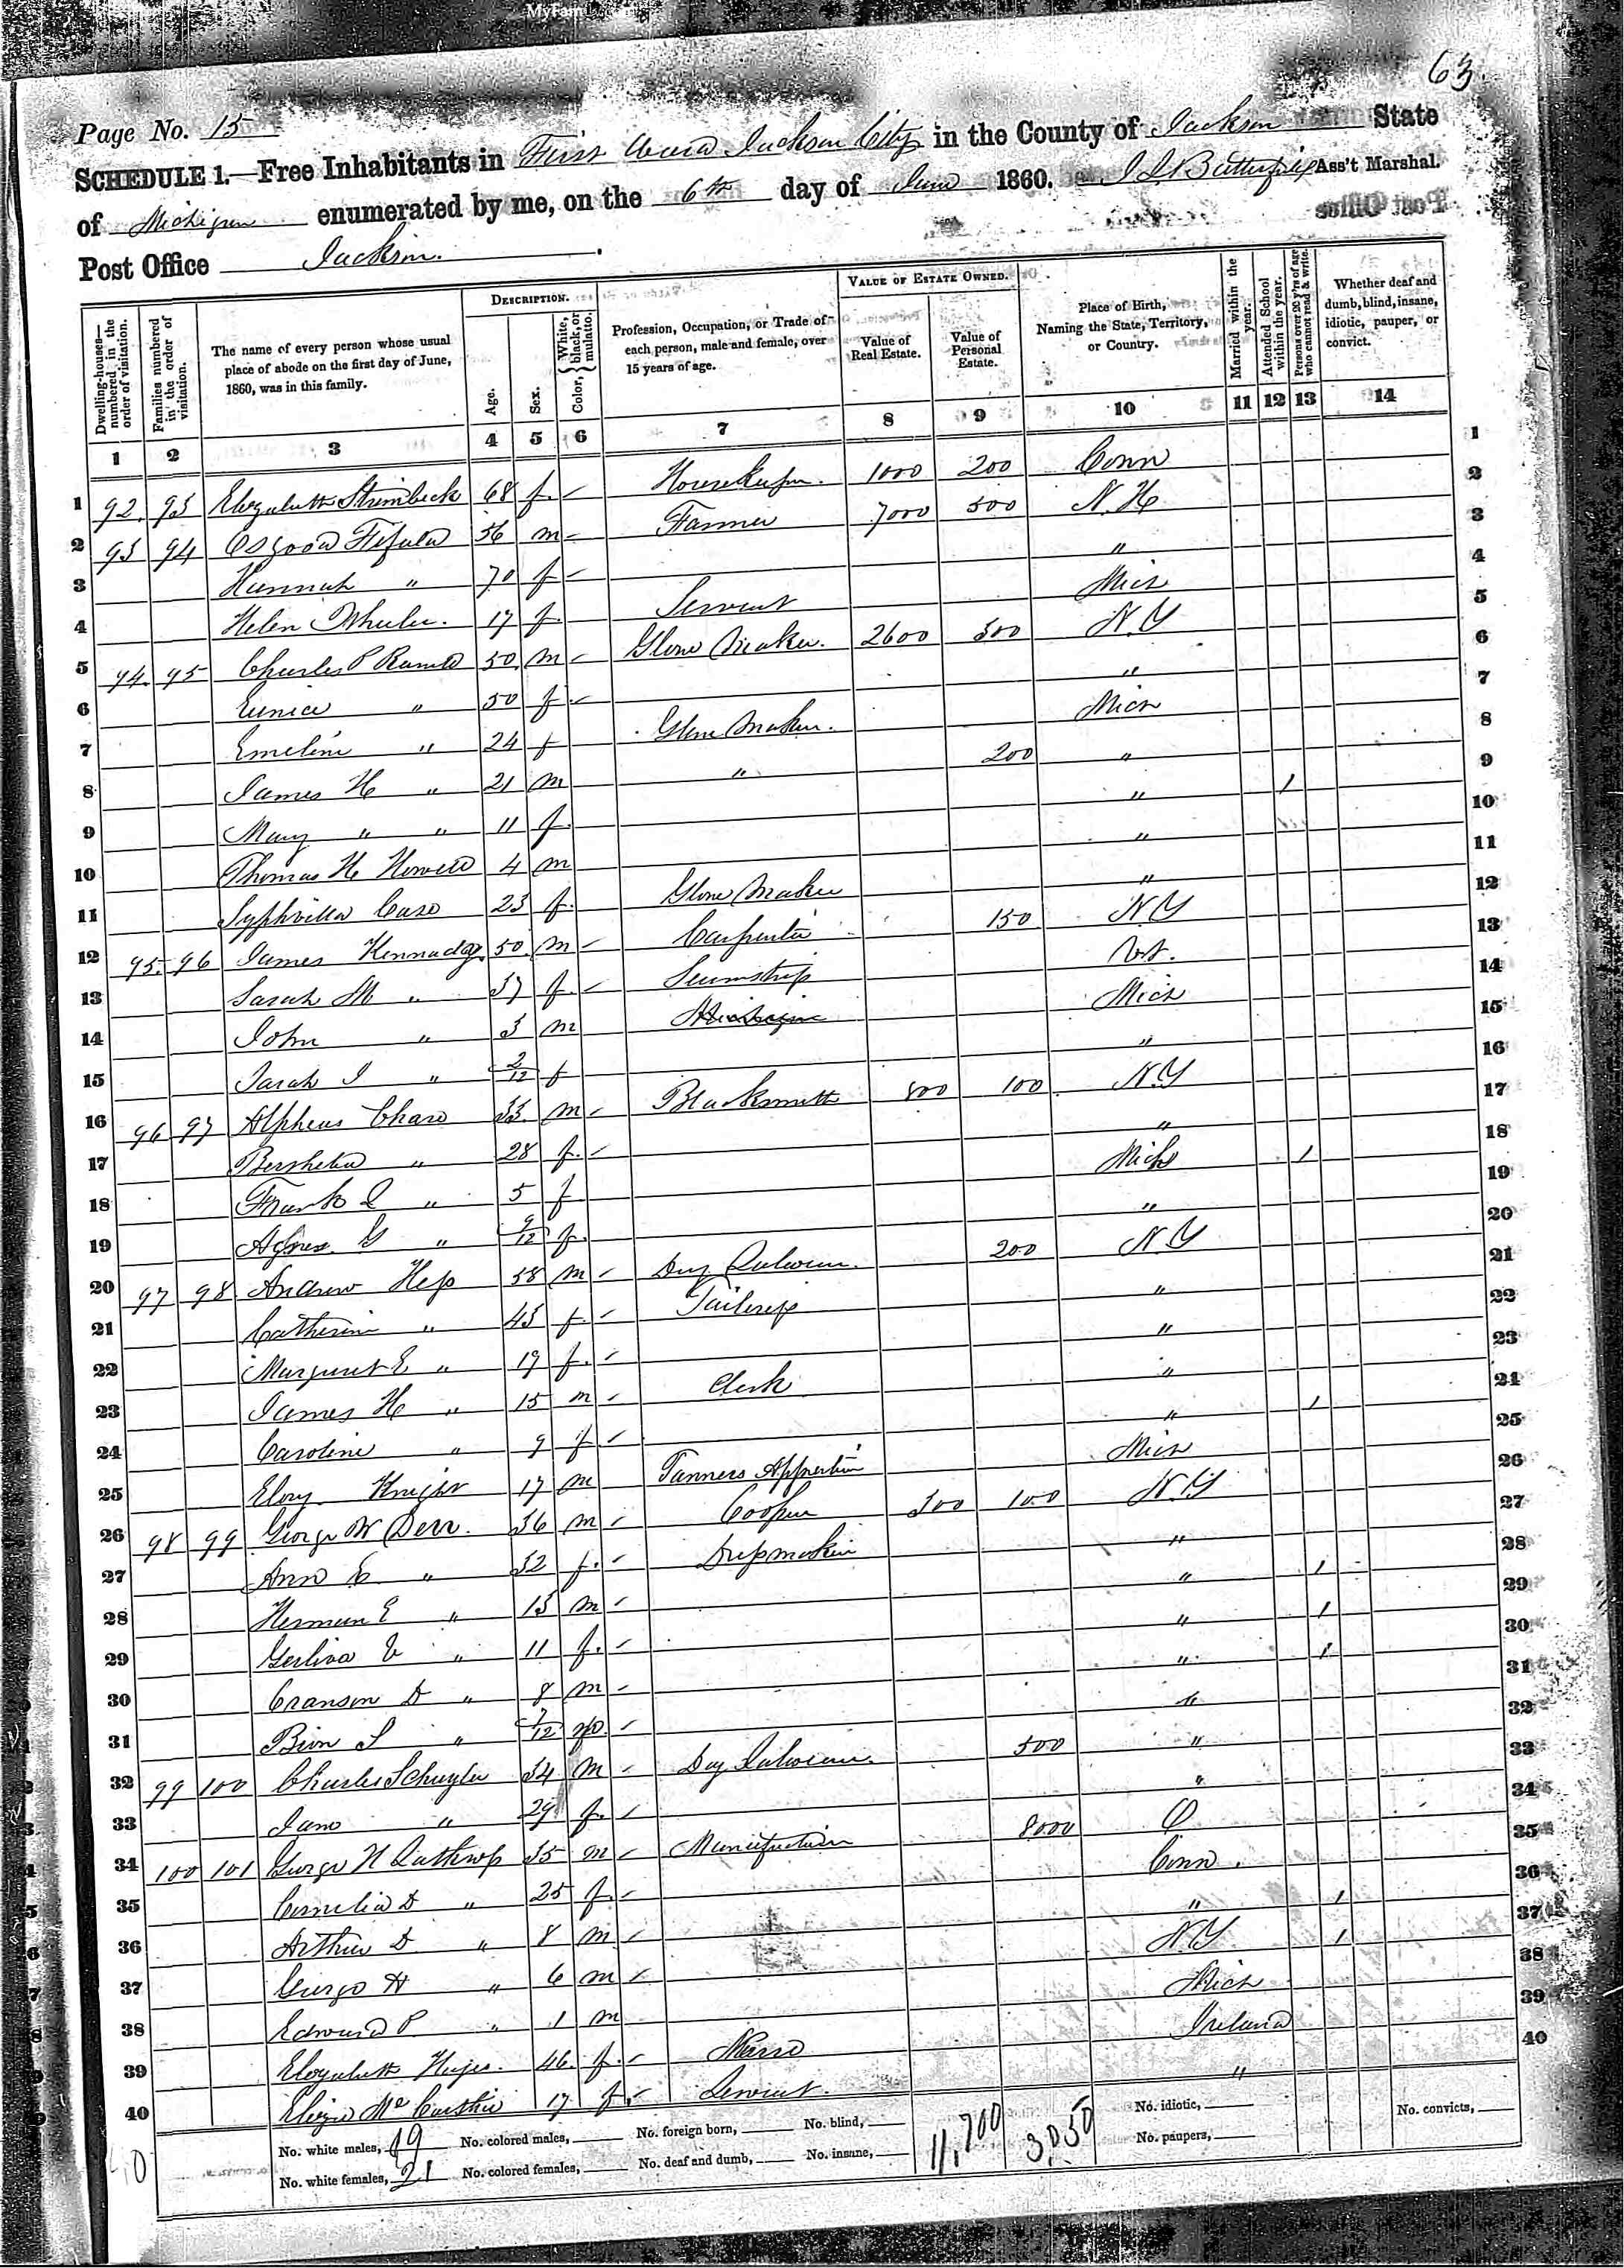 MyFam
63.
Page No. 15
SCHEDULE 1.—Free Inhabitants in First Ward Jackson City in the County of Jackson State
of Michigan enumerated by me, on the 6th day of June 1860. Ass't Marshal.
Post Office Jackson.
Post Office
DESCRIPTION. VALUE OF ESTATE OWNED.
Dwelling-houses—numbered in the order of visitation. Families numbered in the order of visitation. The name of every person whose usual place of abode on the first day of June, 1860, was in this family. Age. Sex. Color, { White, black, or mulatto. Profession, Occupation, or Trade of each person, male and female, over 15 years of age. Value of Real Estate. Value of Personal Estate. Place of Birth, Naming the State, Territory, or Country. Married within the year. Attended School within the year. Persons over 20 y'rs of age who cannot read & write. Whether deaf and dumb, blind, insane, idiotic, pauper, or convict.
1 2 3 4 5 6 7 8 9 10 11 12 13 14
1 92. 93 Elizabeth 68 f. Housekeeper. 1000 200 Conn 1
2 93 94 Osgood 56 m Farmer 7000 500 N.H 2
3 Hannah " 70 f " 3
4 Helen Wheeler. 17 f. Servant Mich 4
5 94. 95 Charles P 50. m Glove Maker. 2600 300 N.Y 5
6 Eunice " 50 f " 6
7 Emeline " 24 f Glove Maker. Mich 7
8 James H " 21 m " 200 " 8
9 Mary " " 11 f. " 1 9
10 Thomas H 4 m " 10
11 Case 23 f. Glove Maker " 11
12 95. 96 James Kennady. 50. m Carpenter 150 N.Y 12
13 Sarah M " 37 f. Seamstress Vt. 13
14 John " 3 m Mich 14
15 Sarah J " 2/12 f " 15
16 96 97 Alpheus Chase 33. m Blacksmith 800 100 N.Y 16
17 " 28 f. " 17
18 Frank " 5 f Mich 1 18
19 Agnes G " 9/12 f. " 19
20 97 98 Andrew Hess 58 m Day Laborer. 200 N.Y 20
21 Catherine " 43 f. Tailoress " 21
22 Margaret E " 19 f. " 22
23 James H " 15 m Clerk " 23
24 Caroline " 9 f " 1 24
25 Knight 17 m Tanners Mich 25
26 98 99 George W Derr. 36 m Cooper 300 100 N.Y 26
27 Ann E. " 32 f. Dressmaker " 27
28 Herman E " 13 m " 1 28
29 " 11 f. " 1 29
30 Cranson D " 8 m " 1 30
31 " 7/12 " 31
32 99 100 Charles Schuyler 34 m Day Laborer. 500 " 32
33 Jane " 29 f. " 33
34 100 101 George H Lathrop 35 m 8000 O 34
35 Cornelia D " 25 f. Conn. 35
36 Arthur D " 8 m " 1 36
37 George H " 6 m N.Y. 1 37
38 Edward P. " 1 m Mich 38
39 Elizabeth 46 f. Nurse Ireland 39
40 Mc 17 f. Servant. " 40
No. white males, 19 No. colored males, No. foreign born, No. blind, 11,700 3050 No. idiotic, No. convicts,
No. white females, 21 No. colored females, No. deaf and dumb, No. insane, No. paupers,